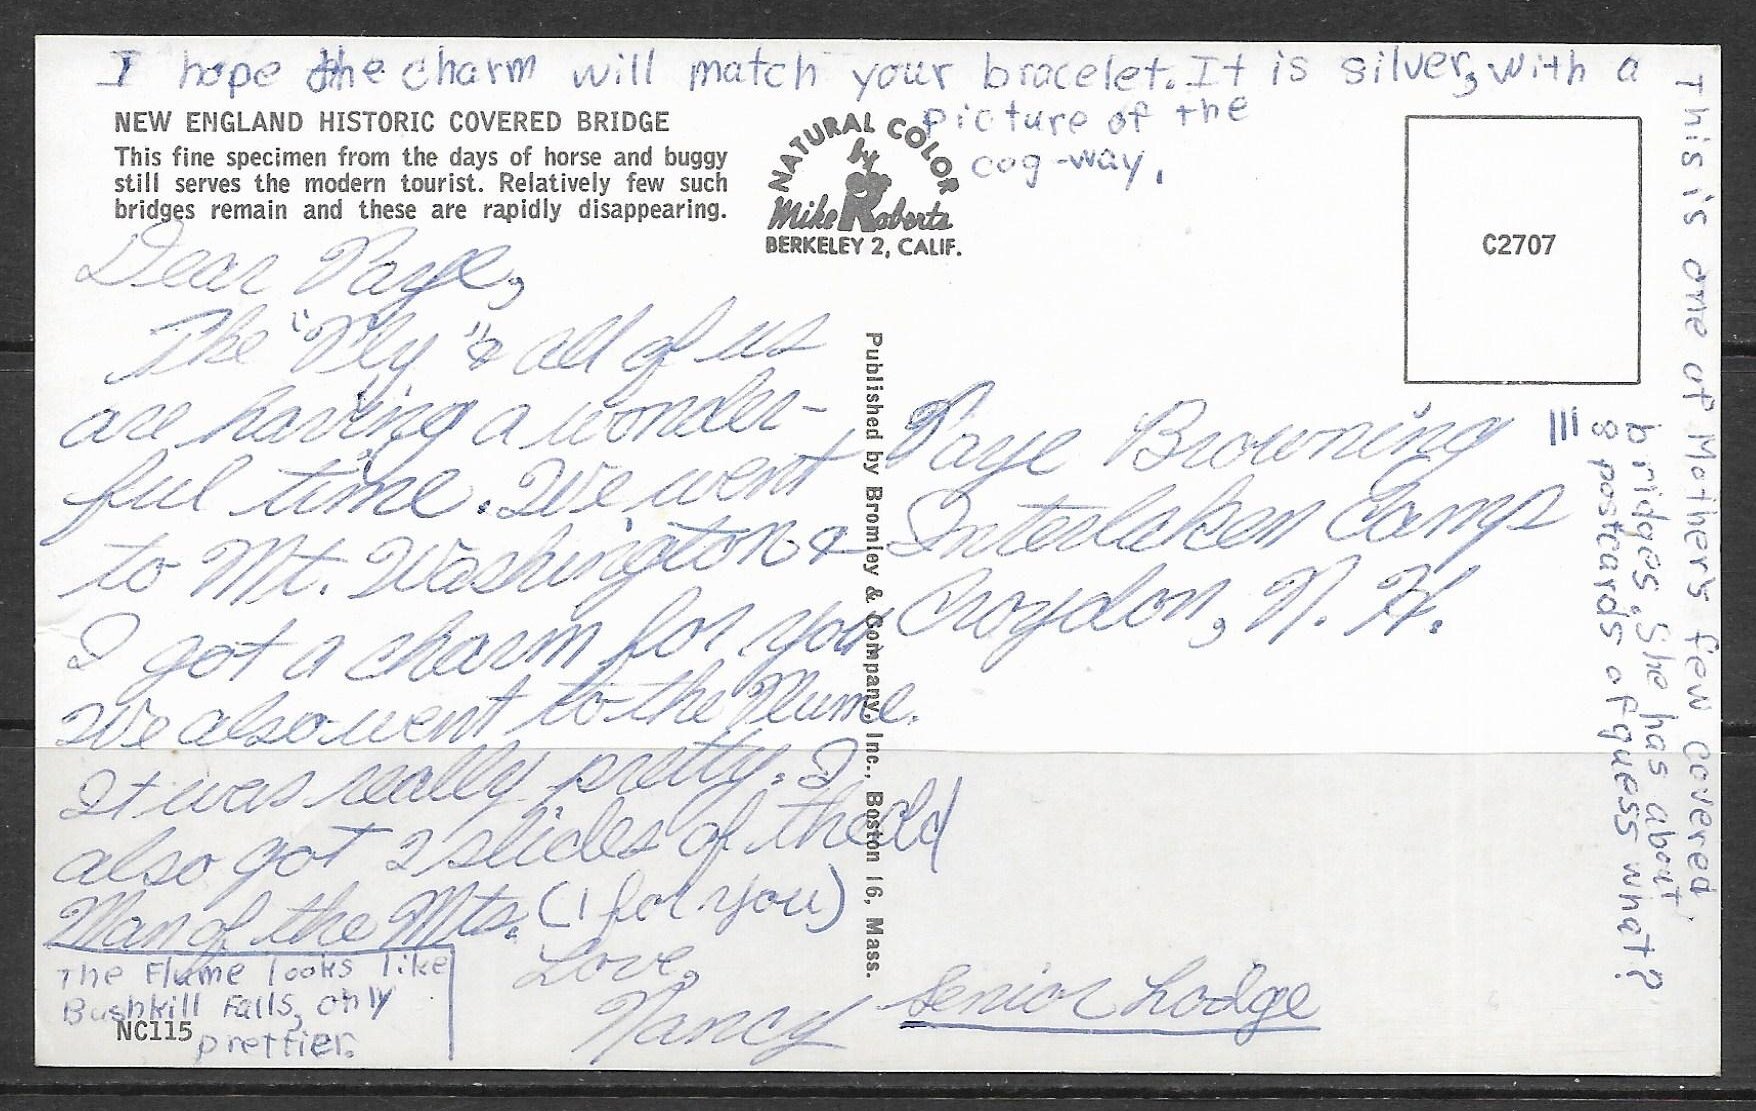 I hope the charm will match your bracelet. It is silver, with a
picture of the
cog-way.
NEW ENGLAND HISTORIC COVERED BRIDGE
This fine specimen from the days of horse and buggy
still serves the modern tourist. Relatively few such
bridges remain and these are rapidly disappearing.
NATURAL COLOR
by
Mike Roberts
BERKELEY 2, CALIF.
C2707
Dear Faye,
The "Fly" & all of us
are having a wonder-
ful time. We went
to Mt. Washington &
I got a charm for you
We also went to the Flume.
It was really pretty. I
also got 2 slides of the Old
Man of the Mts. (1 for you)
Love,
Nancy
The Flume looks like
Bushkill Falls, only
prettier.
NC115
Published by Bromley & Company, Inc., Boston 16, Mass.
Faye Browning
Interlaken Camp
Croydon, N. H.
Senior Lodge
This is one of Mother's few covered
bridges. She has about
8 postcards of guess what?